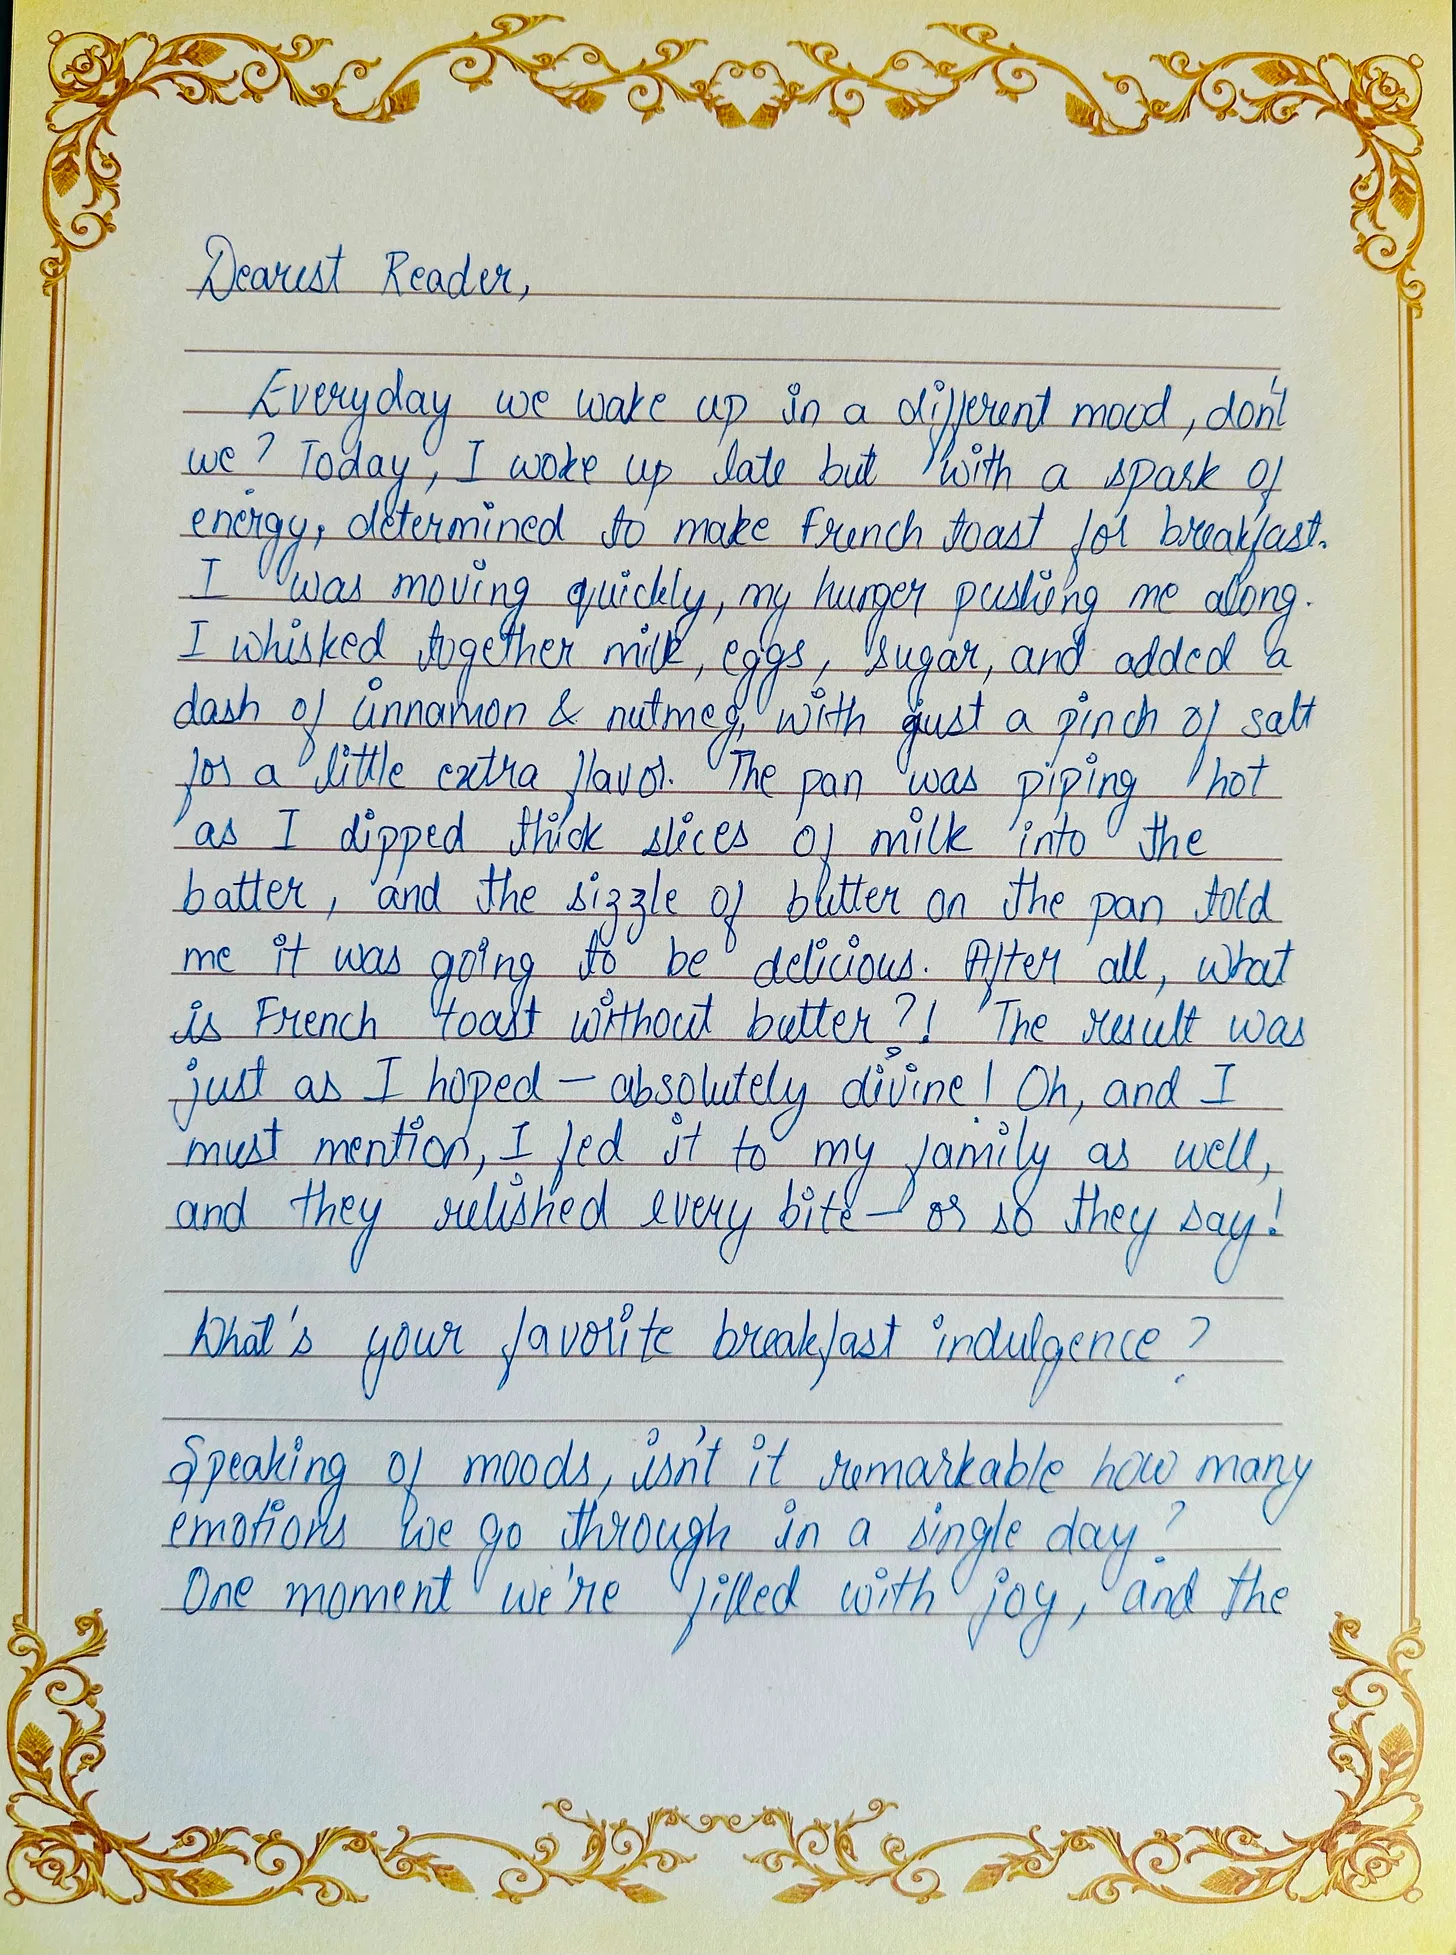 Dearest Reader,
Everyday we wake up in a different mood, don't
we? Today, I woke up late but with a spark of
energy, determined to make French toast for breakfast.
I was moving quickly, my hunger pushing me along.
I whisked together milk, eggs, sugar, and added a
dash of cinnamon & nutmeg, with just a pinch of salt
for a little extra flavor. The pan was piping hot
as I dipped thick slices of milk into the
batter, and the sizzle of butter on the pan told
me it was going to be delicious. After all, what
is French toast without butter?! The result was
just as I hoped — absolutely divine! Oh, and I
must mention, I fed it to my family as well,
and they relished every bite — or so they say!
What's your favorite breakfast indulgence?
Speaking of moods, isn't it remarkable how many
emotions we go through in a single day?
One moment we're filled with joy, and the